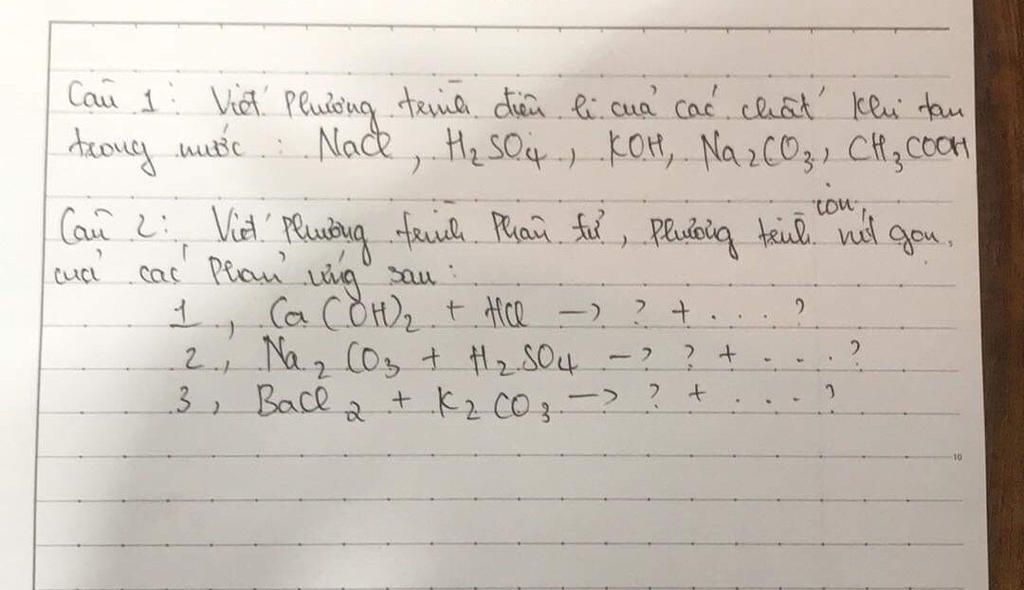 Câu 1: Viết phương trình điện li của các chất khi tan
trong nước: NaCl, H2SO4, KOH, Na2CO3, CH3COOH
Câu 2: Viết phương trình phân tử, phương trình ion rút gọn
của các phản ứng sau:
1, Ca(OH)2 + HCl -> ? + .... ?
2, Na2CO3 + H2SO4 -> ? + .... ?
3, BaCl2 + K2CO3 -> ? + .... ?
10